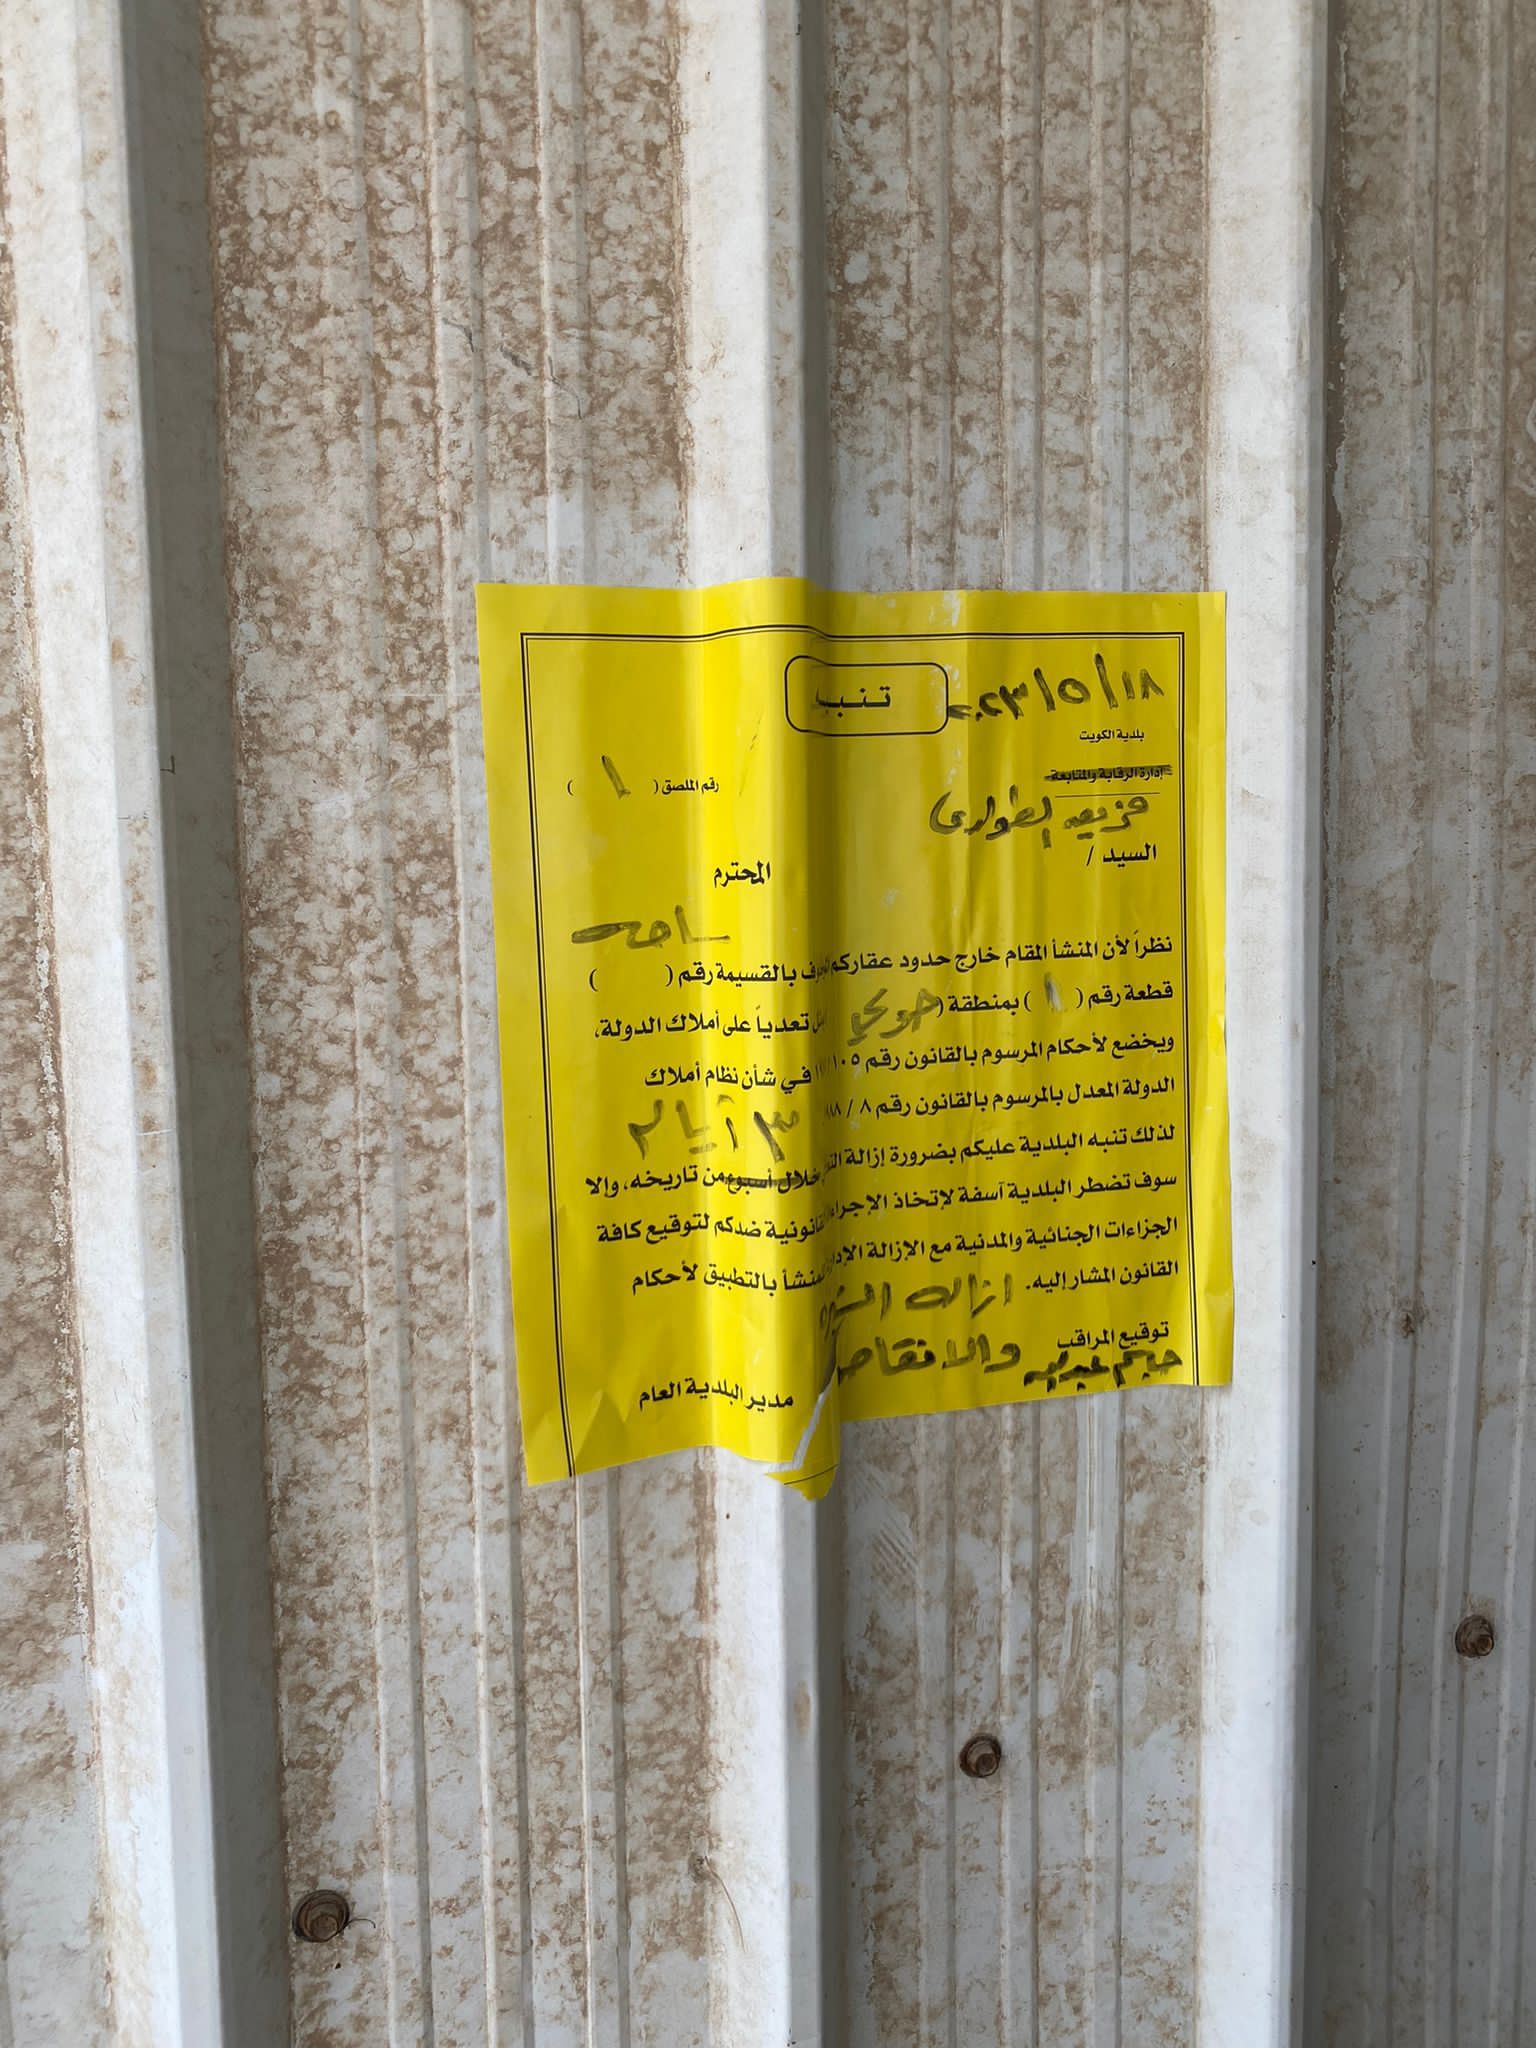 ٢٠٢٣/٥/١٨
تنبيه
بلدية الكويت
إدارة الرقابة والمتابعة
رقم الملصق ( ١ )
الطوارئ
السيد /
المحترم
ساحه
نظراً لأن المنشأ المقام خارج حدود عقاركم بالقسيمة رقم ( )
قطعة رقم ( ١ ) بمنطقة ( حولي تعدياً على أملاك الدولة،
ويخضع لأحكام المرسوم بالقانون رقم ١٠٥/ في شأن نظام أملاك
الدولة المعدل بالمرسوم بالقانون رقم ٨ /
٣ أيام
لذلك تنبه البلدية عليكم بضرورة إزالة خلال أسبوع من تاريخه، وإلا
سوف تضطر البلدية آسفة لإتخاذ الإجراءات القانونية ضدكم لتوقيع كافة
الجزاءات الجنائية والمدنية مع الإزالة الإدارية للمنشأ بالتطبيق لأحكام
القانون المشار إليه.
ازاله
والانقاض
توقيع المراقب
مدير البلدية العام